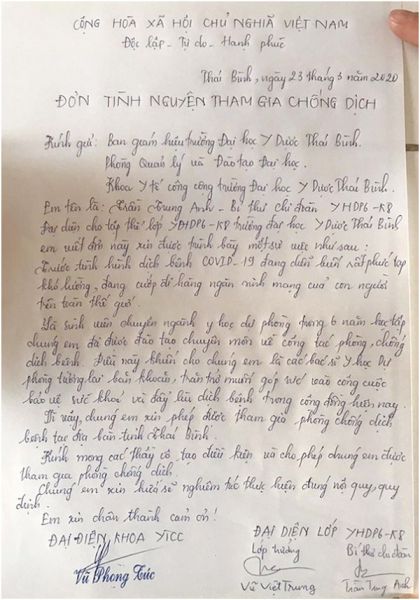 CỘNG HÒA XÃ HỘI CHỦ NGHĨA VIỆT NAM
Độc lập - Tự do - Hạnh phúc
Thái Bình, ngày 23 tháng 3 năm 2020
ĐƠN TÌNH NGUYỆN THAM GIA CHỐNG DỊCH
Kính gửi: Ban giám hiệu trường Đại học Y Dược Thái Bình.
Phòng Quản lý và Đào tạo Đại học.
Khoa Y tế công cộng trường Đại học Y Dược Thái Bình.
Em tên là: Trần Trung Anh - Bí thư chi đoàn YHDP6-K8
Đại diện cho tập thể lớp YHDP6-K8 trường đại học Y Dược Thái Bình
em viết đơn này xin được trình bày một số việc như sau:
Trước tình hình dịch bệnh COVID-19 đang diễn biến rất phức tạp
khó lường, đang cướp đi hàng ngàn sinh mạng của con người
trên toàn thế giới.
Là sinh viên chuyên ngành y học dự phòng trong 6 năm học tập
chúng em đã được đào tạo chuyên môn về công tác phòng, chống
dịch bệnh. Điều này khiến cho chúng em là các bác sĩ Y học Dự
phòng tương lai băn khoăn, trăn trở muốn góp sức vào công cuộc
bảo vệ sức khoẻ và đẩy lùi dịch bệnh trong cộng đồng hiện nay.
Vì vậy, chúng em xin phép được tham gia phòng chống dịch
bệnh tại địa bàn tỉnh Thái Bình.
Kính mong các thầy cô tạo điều kiện và cho phép chúng em được
tham gia phòng chống dịch.
Chúng em xin hứa sẽ nghiêm túc thực hiện đúng nội quy, quy
định.
Em xin chân thành cảm ơn!
ĐẠI DIỆN KHOA YTCC
ĐẠI DIỆN LỚP YHDP6-K8
Lớp trưởng Bí thư chi đoàn
Vũ Phong Túc
Vũ Việt Trung Trần Trung Anh